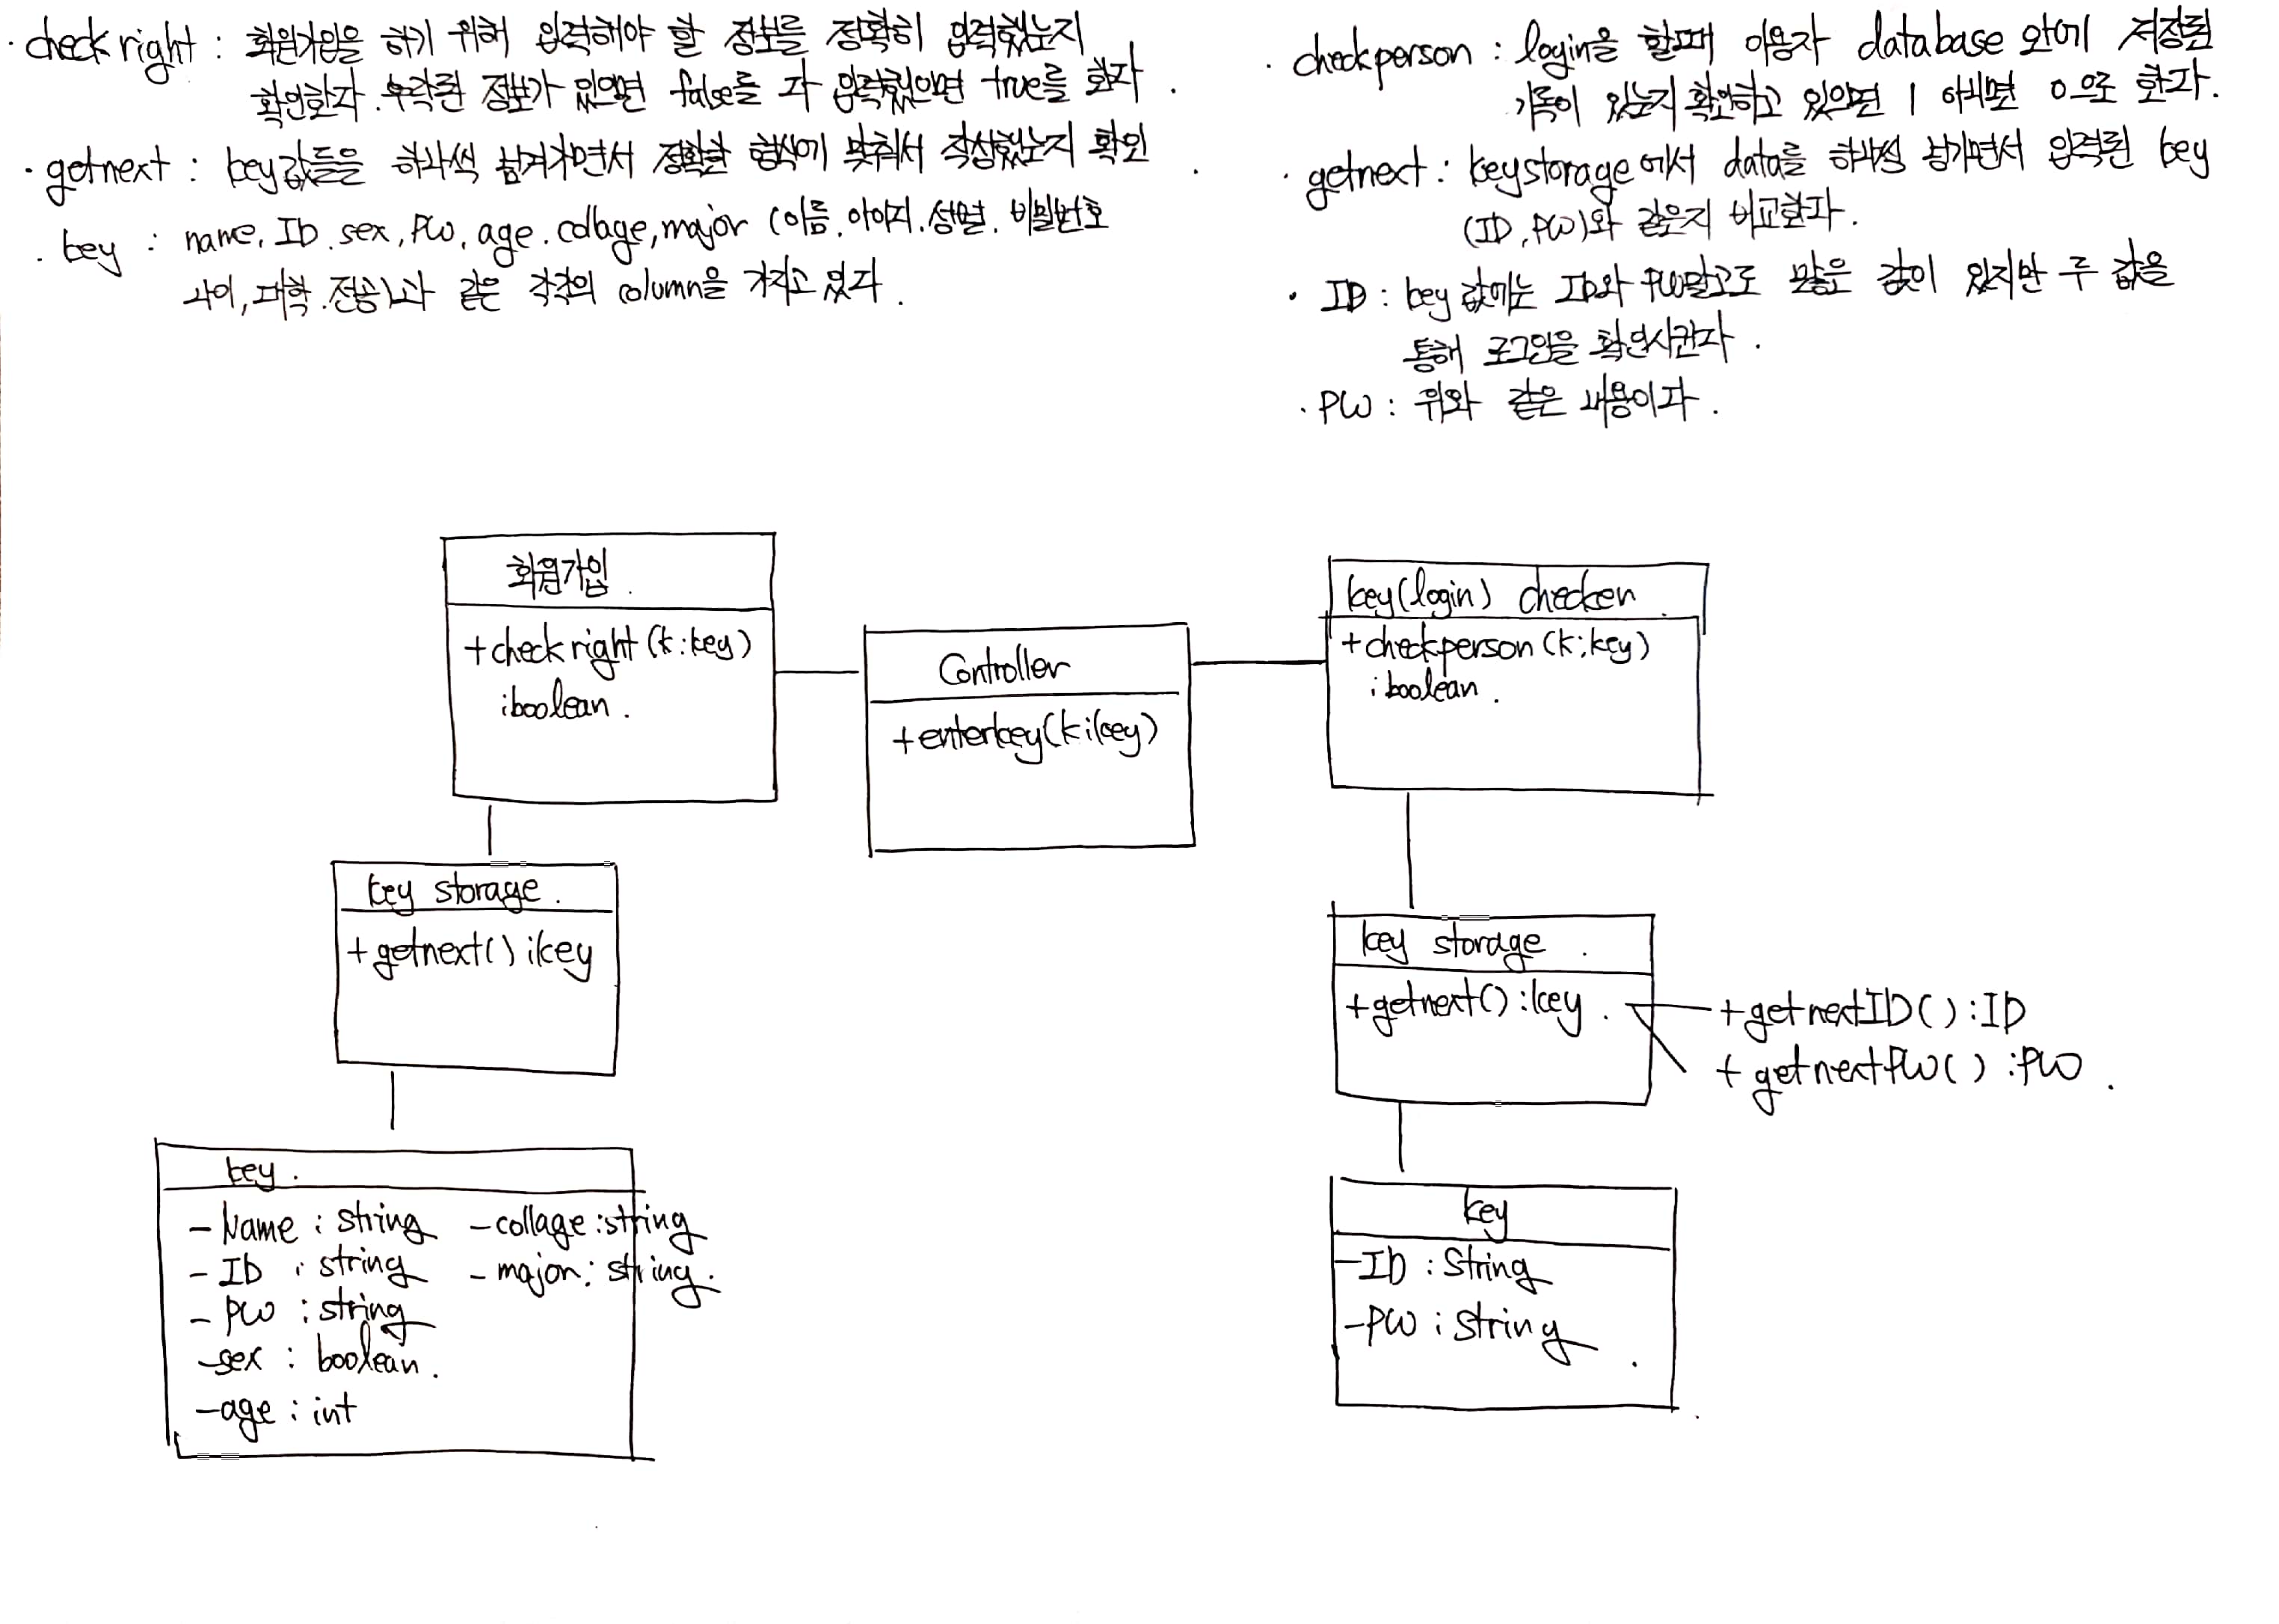 · check right : 회원가입을 하기 위해 입력해야 할 정보를 정확히 입력했는지
확인한다. 누락된 정보가 있으면 false를 다 입력했으면 true를 한다.
· getnext : key값들을 하나씩 넘겨가면서 정확한 형식에 맞춰서 작성했는지 확인.
· key : name, ID. sex, PW, age. collage, major (이름. 아이디. 성별. 비밀번호
나이, 대학. 전공)과 같은 각각의 column을 가지고 있다.
· checkperson : login을 할때 이용자 database 안에 저장된
기록이 있는지 확인하고 있으면 1 아니면 0으로 한다.
· getnext : keystorage에서 data를 하나씩 넘기면서 입력된 key
(ID, PW)와 같은지 비교한다.
· ID : key 값에는 ID와 PW말고도 많은 값이 있지만 두 값을
통해 로그인을 확인시킨다.
· PW : 위와 같은 내용이다.
회원가입.
+check right (k:key)
:boolean.
Controller
+enterkey(k:key)
key(login) checker.
+checkperson(k:key)
:boolean.
key storage.
+getnext():key
key storage.
+getnext():key.
+getnextID():ID
+getnextPW():PW.
key.
-Name : string -collage:string
-ID : string -major: string.
-PW : string
-sex : boolean.
-age : int
key
-ID : String
-PW : String.